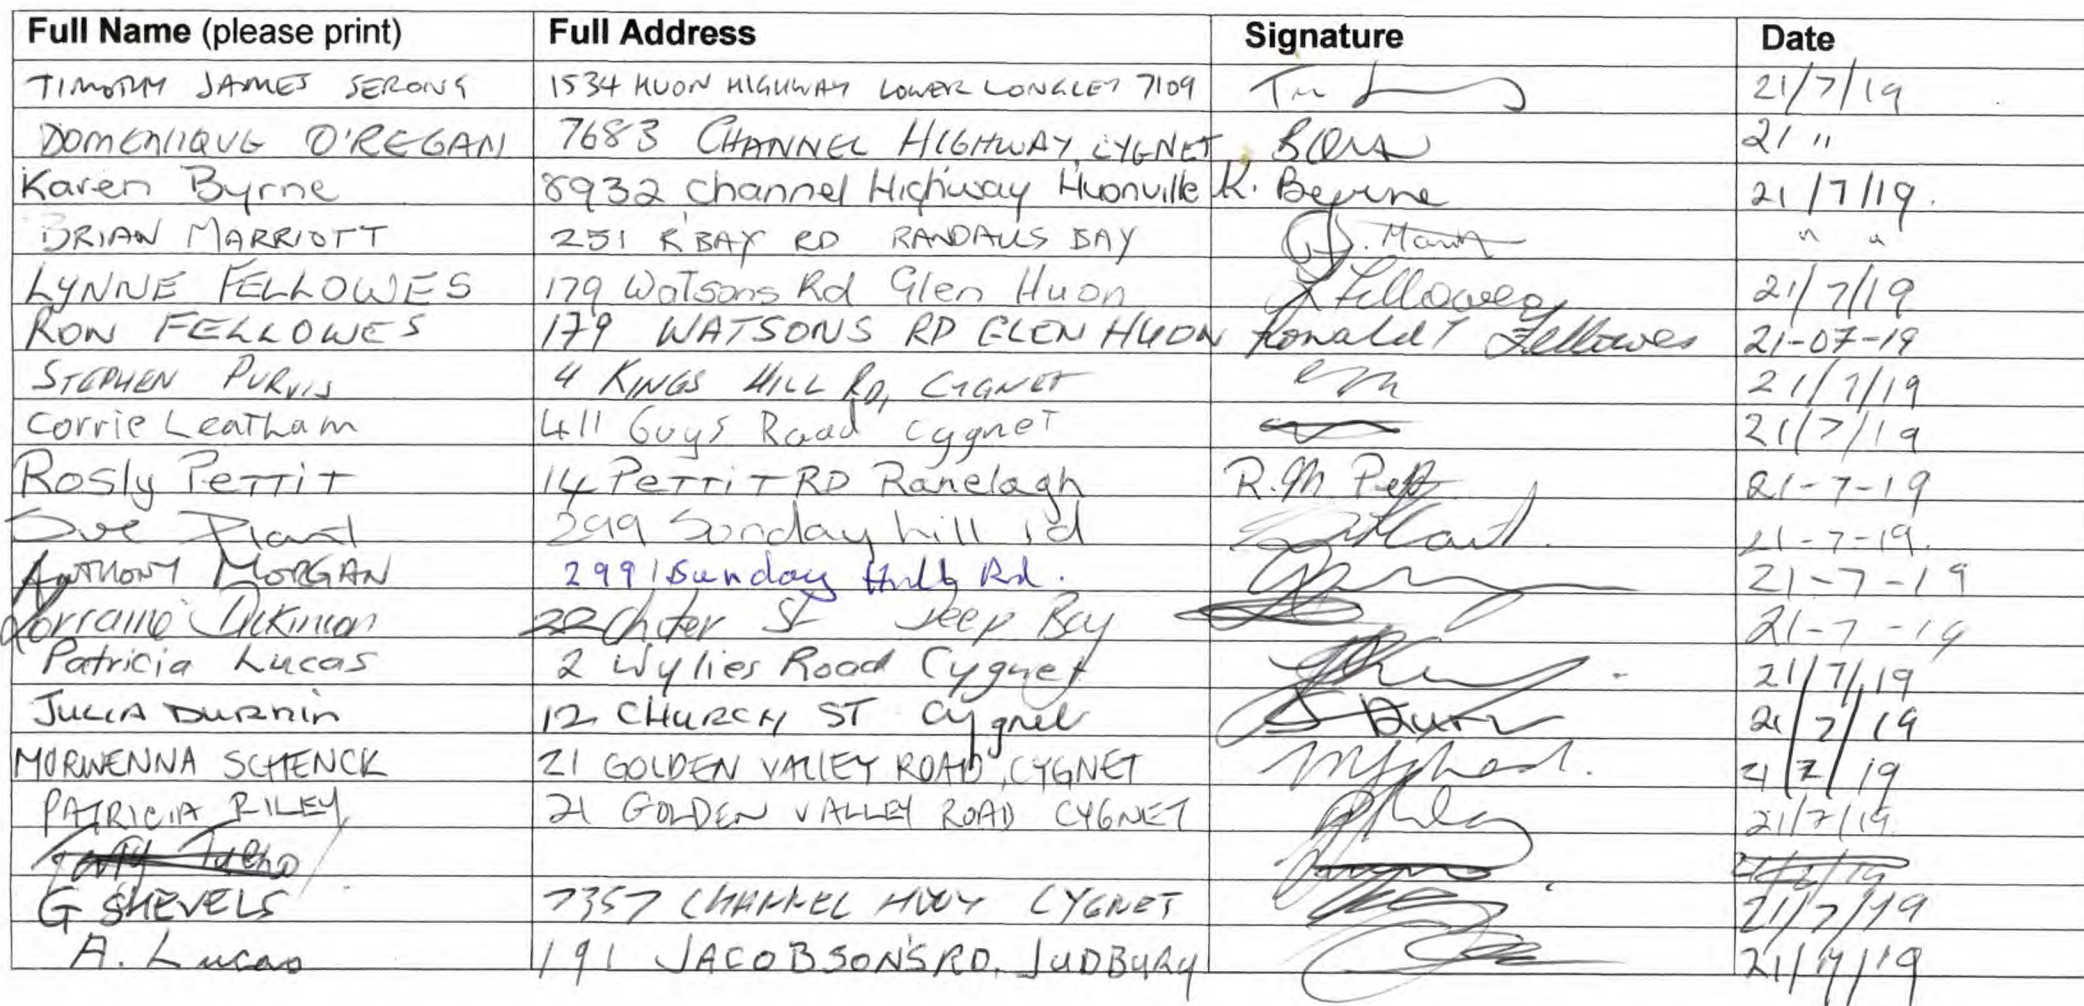 Full Name (please print) Full Address Signature Date
TIMOTHY JAMES SERONG 1534 HUON HIGHWAY LOWER LONGLEY 7109 21/7/19
DOMENIQUE O'REGAN 7683 CHANNEL HIGHWAY, CYGNET 21 "
Karen Byrne 8932 Channel Highway Huonville K. Byrne 21/7/19.
BRIAN MARRIOTT 251 R'BAY RD RANDALLS BAY " "
LYNNE FELLOWES 179 Watsons Rd Glen Huon L Fellowes 21/7/19
RON FELLOWES 179 WATSONS RD GLEN HUON Ronald T Fellowes 21-07-19
STEPHEN PURVIS 4 KINGS HILL RD, CYGNET 21/7/19
Corrie Leatham 411 Guys Road Cygnet 21/7/19
Rosly Pettit 14 Pettit RD Ranelagh R.M Pett 21-7-19
Sue Plant 299 Sunday hill rd 21-7-19.
ANTHONY MORGAN 299 Sunday Hill Rd. 21-7-19
Lorraine Dickinson 22 St Deep Bay 21-7-19
Patricia Lucas 2 Wylies Road Cygnet 21/7/19
JULIA DURNIN 12 CHURCH ST Cygnet J Durn 21/7/19
MORWENNA SCHENCK 21 GOLDEN VALLEY ROAD, CYGNET 21/7/19
PATRICIA RILEY 21 GOLDEN VALLEY ROAD CYGNET 21/7/19
G SHEVELS 7357 CHANNEL HWY CYGNET 21/7/19
A. Lucas 191 JACOBSONS RD. JUDBURY 21/7/19